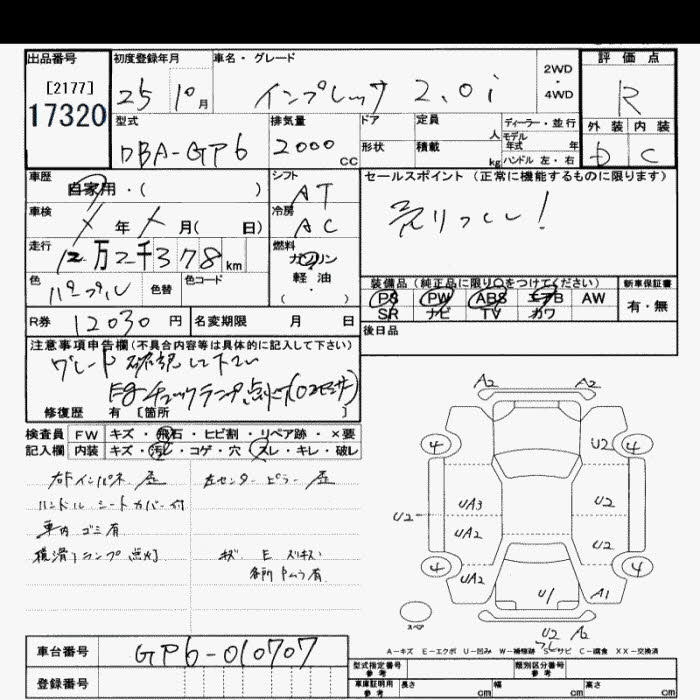 出品番号
[2177]
17320
初度登録年月
25 10月
車名・グレード
インプレッサ 2.0i
2WD
・
4WD
評価点
R
型式
DBA-GP6
排気量
2000 CC
ドア
形状
定員
人
積載
kg
ディーラー・並行
モデル
年式 年
ハンドル 左・右
外装 内装
D C
車歴
自家用・( )
シフト
AT
車検
年 月( 日)
冷房
AC
走行
12万2千378km
燃料
ガソリン
軽油
( ・ )
色
パープル
色替
色コード
R券 12030円
名変期限 月 日
セールスポイント(正常に機能するものに限ります)
売りつくし!
装備品(純正品に限り○をつけてください)
PS PW ABS エアB AW
SR ナビ TV カワ
新車保証書
有・無
後日品
注意事項申告欄(不具合内容等は具体的に記入して下さい)
グレード確認して下さい
Egチェックランプ点灯(O2センサー)
修復歴 有 [箇所 ]
検査員 FW キズ・飛石・ヒビ割・リペア跡・×要
記入欄 内装 キズ・汚レ・コゲ・穴・スレ・キレ・破レ
右Fインパネ歪 左センターピラー歪
ハンドル シートカバー付
車内ゴミ有
横滑りランプ点灯 キズ E ズリキズ
各所 色ムラ有
A2 A2
4 U2 4
UA3 U2
U2 UA2 U2
4 UA2 4
U1 A1
スペア
U2 A2
A-キズ E-エクボ U-凹み W-補修跡 S-サビ C-腐食 XX-交換済
車台番号 GP6-010707
登録番号
型式指定番号
参考
類別区分番号
参考
車庫証明用
参考
長さ cm 幅 cm 高さ cm